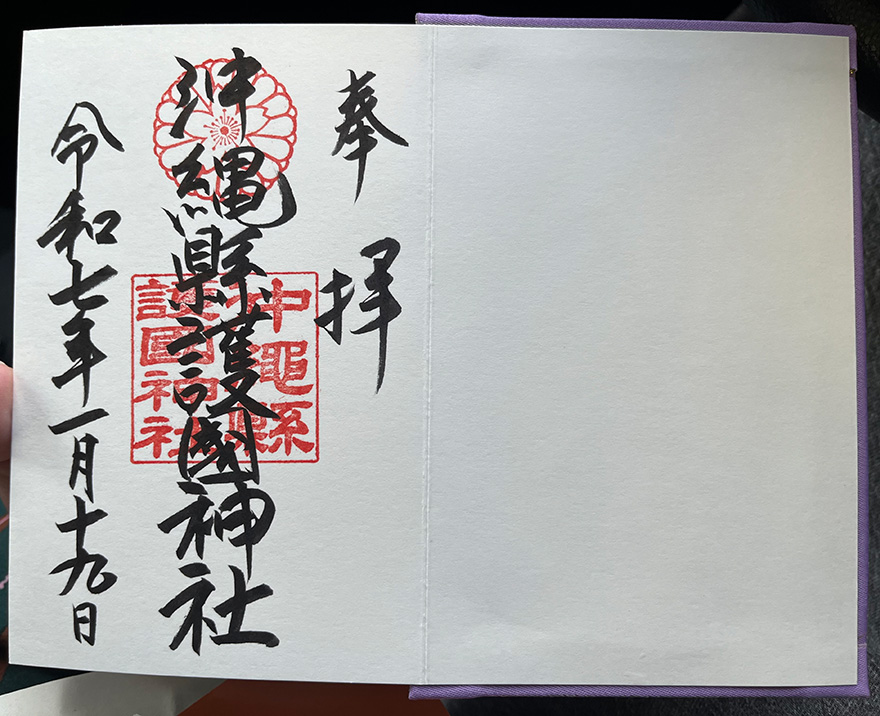 奉拝
沖縄縣護國神社
沖繩縣護國神社
令和七年一月十九日